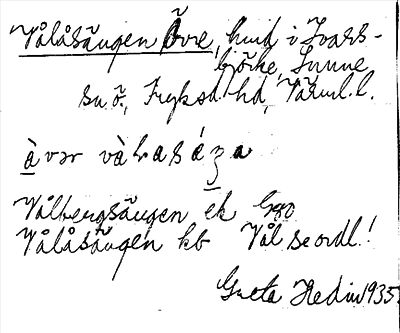 Vålåsängen Övre, hmd i Ivars-
björke, Sunne
sn ö., Fryksd hd, Värml. l.
àvər vàlasǽŋa
Vålbergsängen ek G90
Vålåsängen kb Vål se ordl!
Greta Hedin 1935